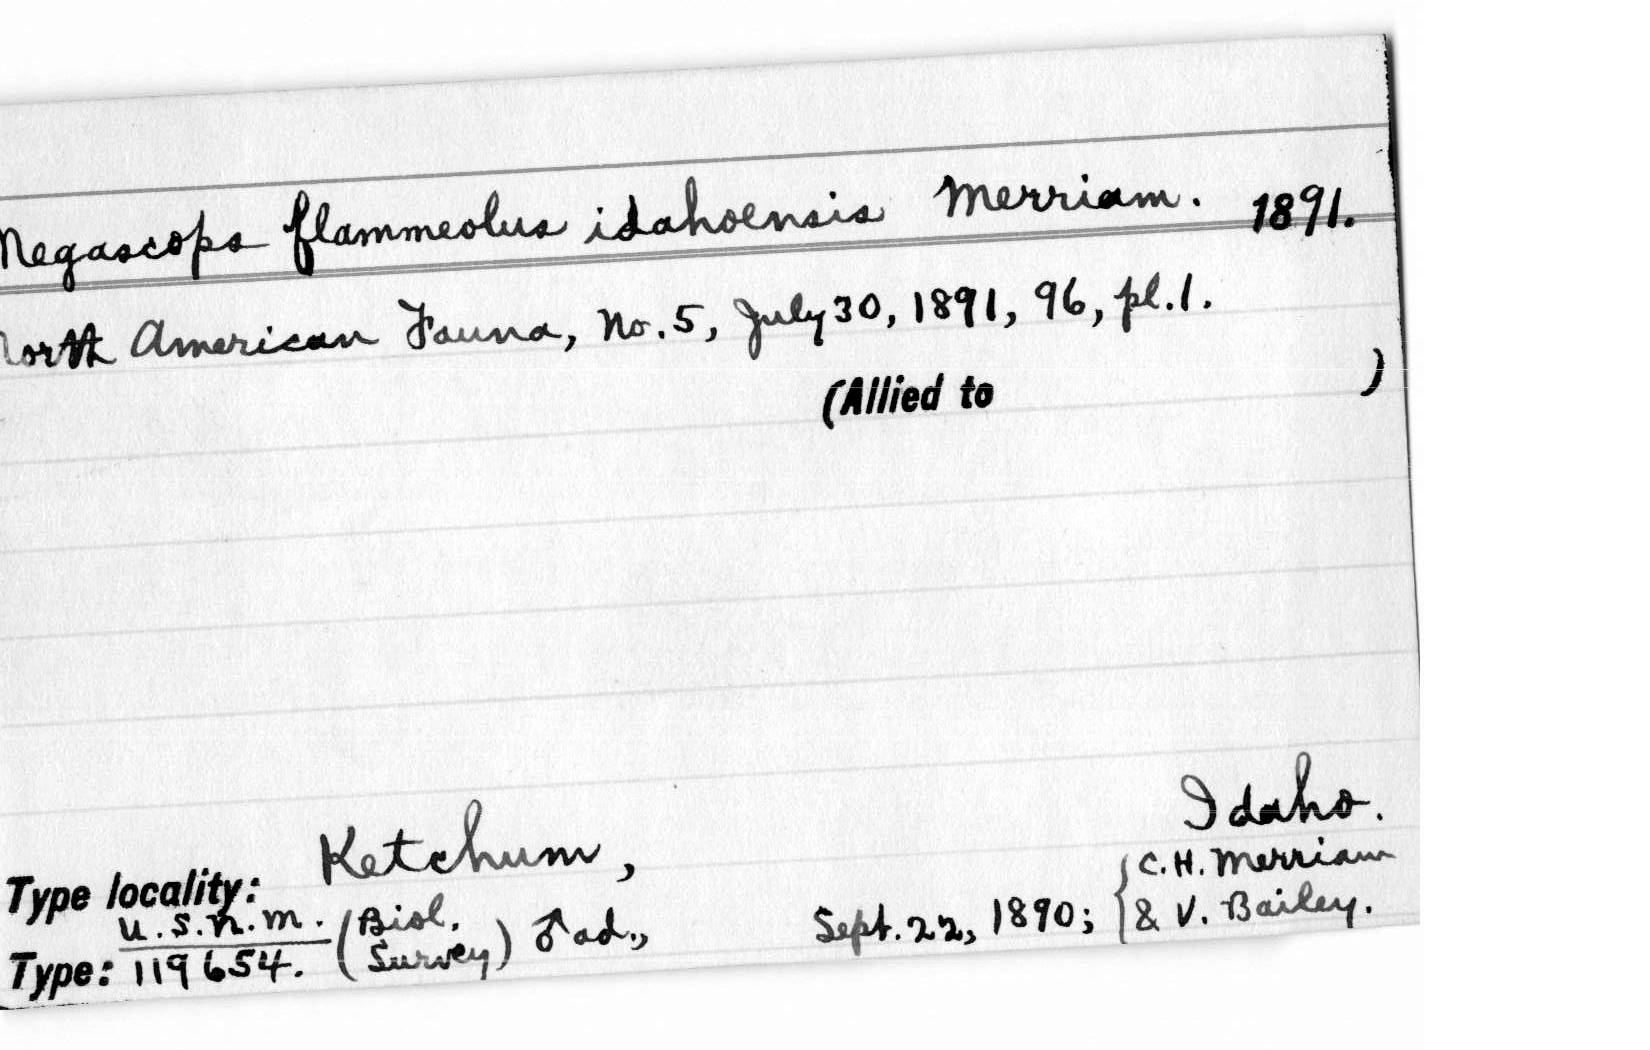 Megascops flammeolus idahoensis Merriam. 1891.
North American Fauna, No. 5, July 30, 1891, 96, pl. 1.
(Allied to )
Type locality: Ketchum, Idaho.
Type: U.S.N.M. 119654. (Biol. Survey) ♂ ad., Sept. 22, 1890; { C. H. Merriam & V. Bailey.